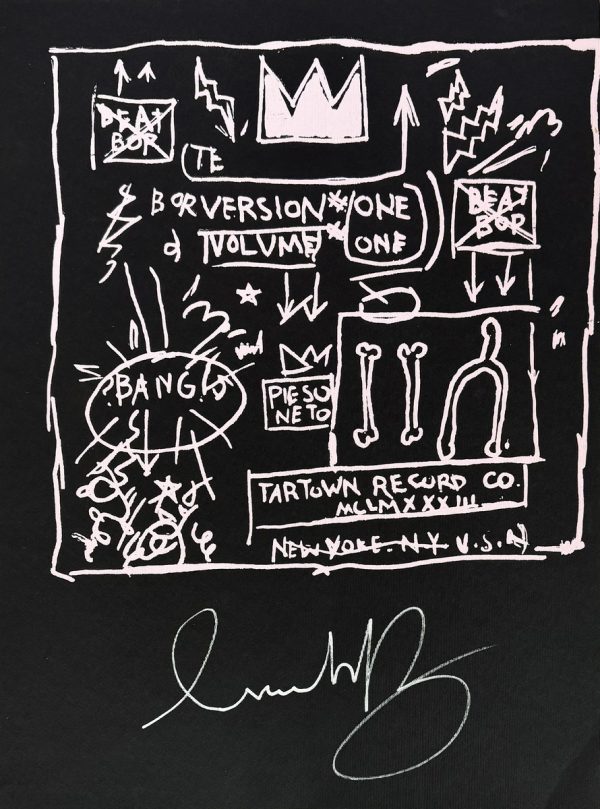 BEAT
BOP
TE
BOR VERSION* ONE
d VOLUME* ONE
BEAT
BOP
?BANG!
PIESO
NETO
TARTOWN RECORD CO.
MCLMXXXIII
NEW YORK. N.Y. U.S.A